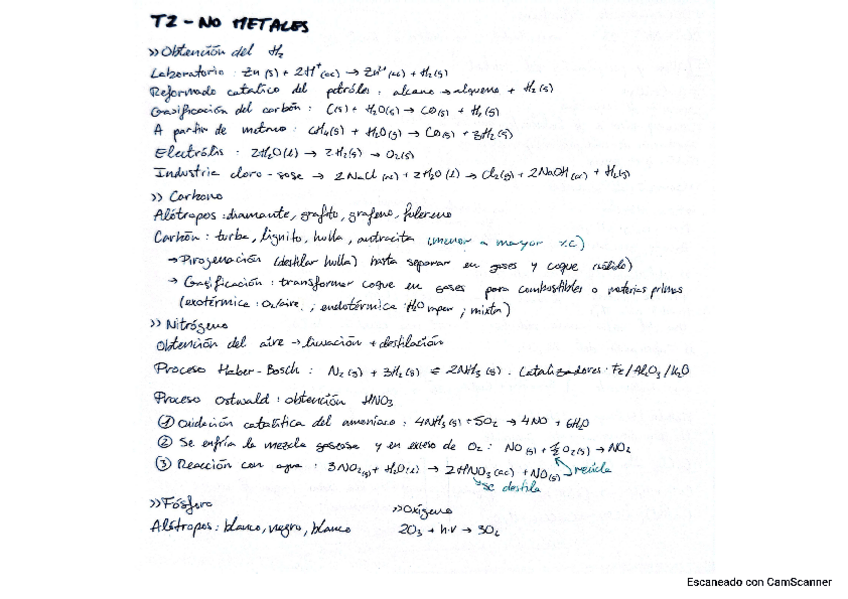 T2 - NO METALES
>> Obtención del H₂
Laboratorio : Zn (s) + 2H⁺ (ac) → Zn²⁺ (ac) + H₂(g)
Reformado catalico del petróleo : alcano → alqueno + H₂ (g)
Gasificación del carbón : C(s) + H₂O(g) → CO(g) + H₂(g)
A partir de metano : CH₄(g) + H₂O(g) → CO(g) + 3H₂(g)
Electrólis : 2H₂O(l) → 2H₂(g) → O₂(g)
Industria cloro-sosa → 2NaCl (ac) + 2H₂O (l) → Cl₂(g) + 2NaOH (ac) + H₂(g)
>> Carbono
Alótropos : diamante, grafito, grafeno, fulereno
Carbón : turba, lignito, hulla, antracita (menor a mayor %C)
→ Pirogenación (destilar hulla) hasta separar en gases y coque (sólido)
→ Gasificación : transformar coque en gases para combustibles o materias primas
(exotérmica : O₂/aire ; endotérmica : H₂O vapor ; mixta)
>> Nitrógeno
Obtención del aire → licuación + destilación
Proceso Haber-Bosch : N₂(g) + 3H₂(g) ⇌ 2NH₃(g). Catalizadores : Fe/Al₂O₃/K₂O
Proceso Ostwald : obtención HNO₃
① Oxidación catalítica del amoniaco : 4NH₃(g) + 5O₂ → 4NO + 6H₂O
② Se enfría la mezcla gaseosa y en exceso de O₂ : NO(g) + ½O₂(g) → NO₂
③ Reacción con agua : 3NO₂(g) + H₂O(l) → 2HNO₃(ac) + NO(g) recicla
se destila
>> Fósforo
Alótropos : blanco, negro, blanco
>> Oxígeno
2O₃ + h·v → 3O₂
Escaneado con CamScanner